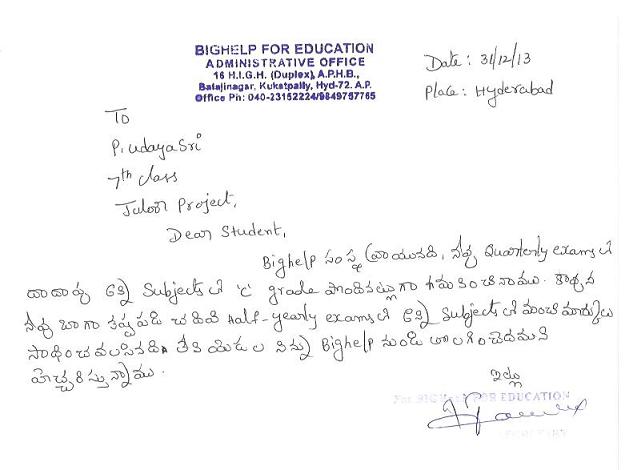 BIGHELP FOR EDUCATION
ADMINISTRATIVE OFFICE
16 H.I.G.H. (Duplex), A.P.H.B.,
Balajinagar, Kukatpally, Hyd-72. A.P.
Office Ph: 040-23152224/9849757765
Date: 31/12/13
Place: Hyderabad
To
P. udaya Sri
7th class
Juloor Project,
Dear Student,
Bighelp సంస్థ వ్రాయునది, నీవు Quarterly examsలో
దాదాపు అన్ని Subjectsలో 'C' grade పొందినట్లుగా గమనించినాము. కావున
నీవు బాగా కష్టపడి చదివి Half-yearly examsలో అన్ని Subjectsలో మంచి మార్కులు
సాధించవలసినది. లేని యెడల నిన్ను Bighelp నుండి తొలగించెదమని
హెచ్చరిస్తున్నాము.
ఇట్లు
For BIGHELP FOR EDUCATION
SECRETARY